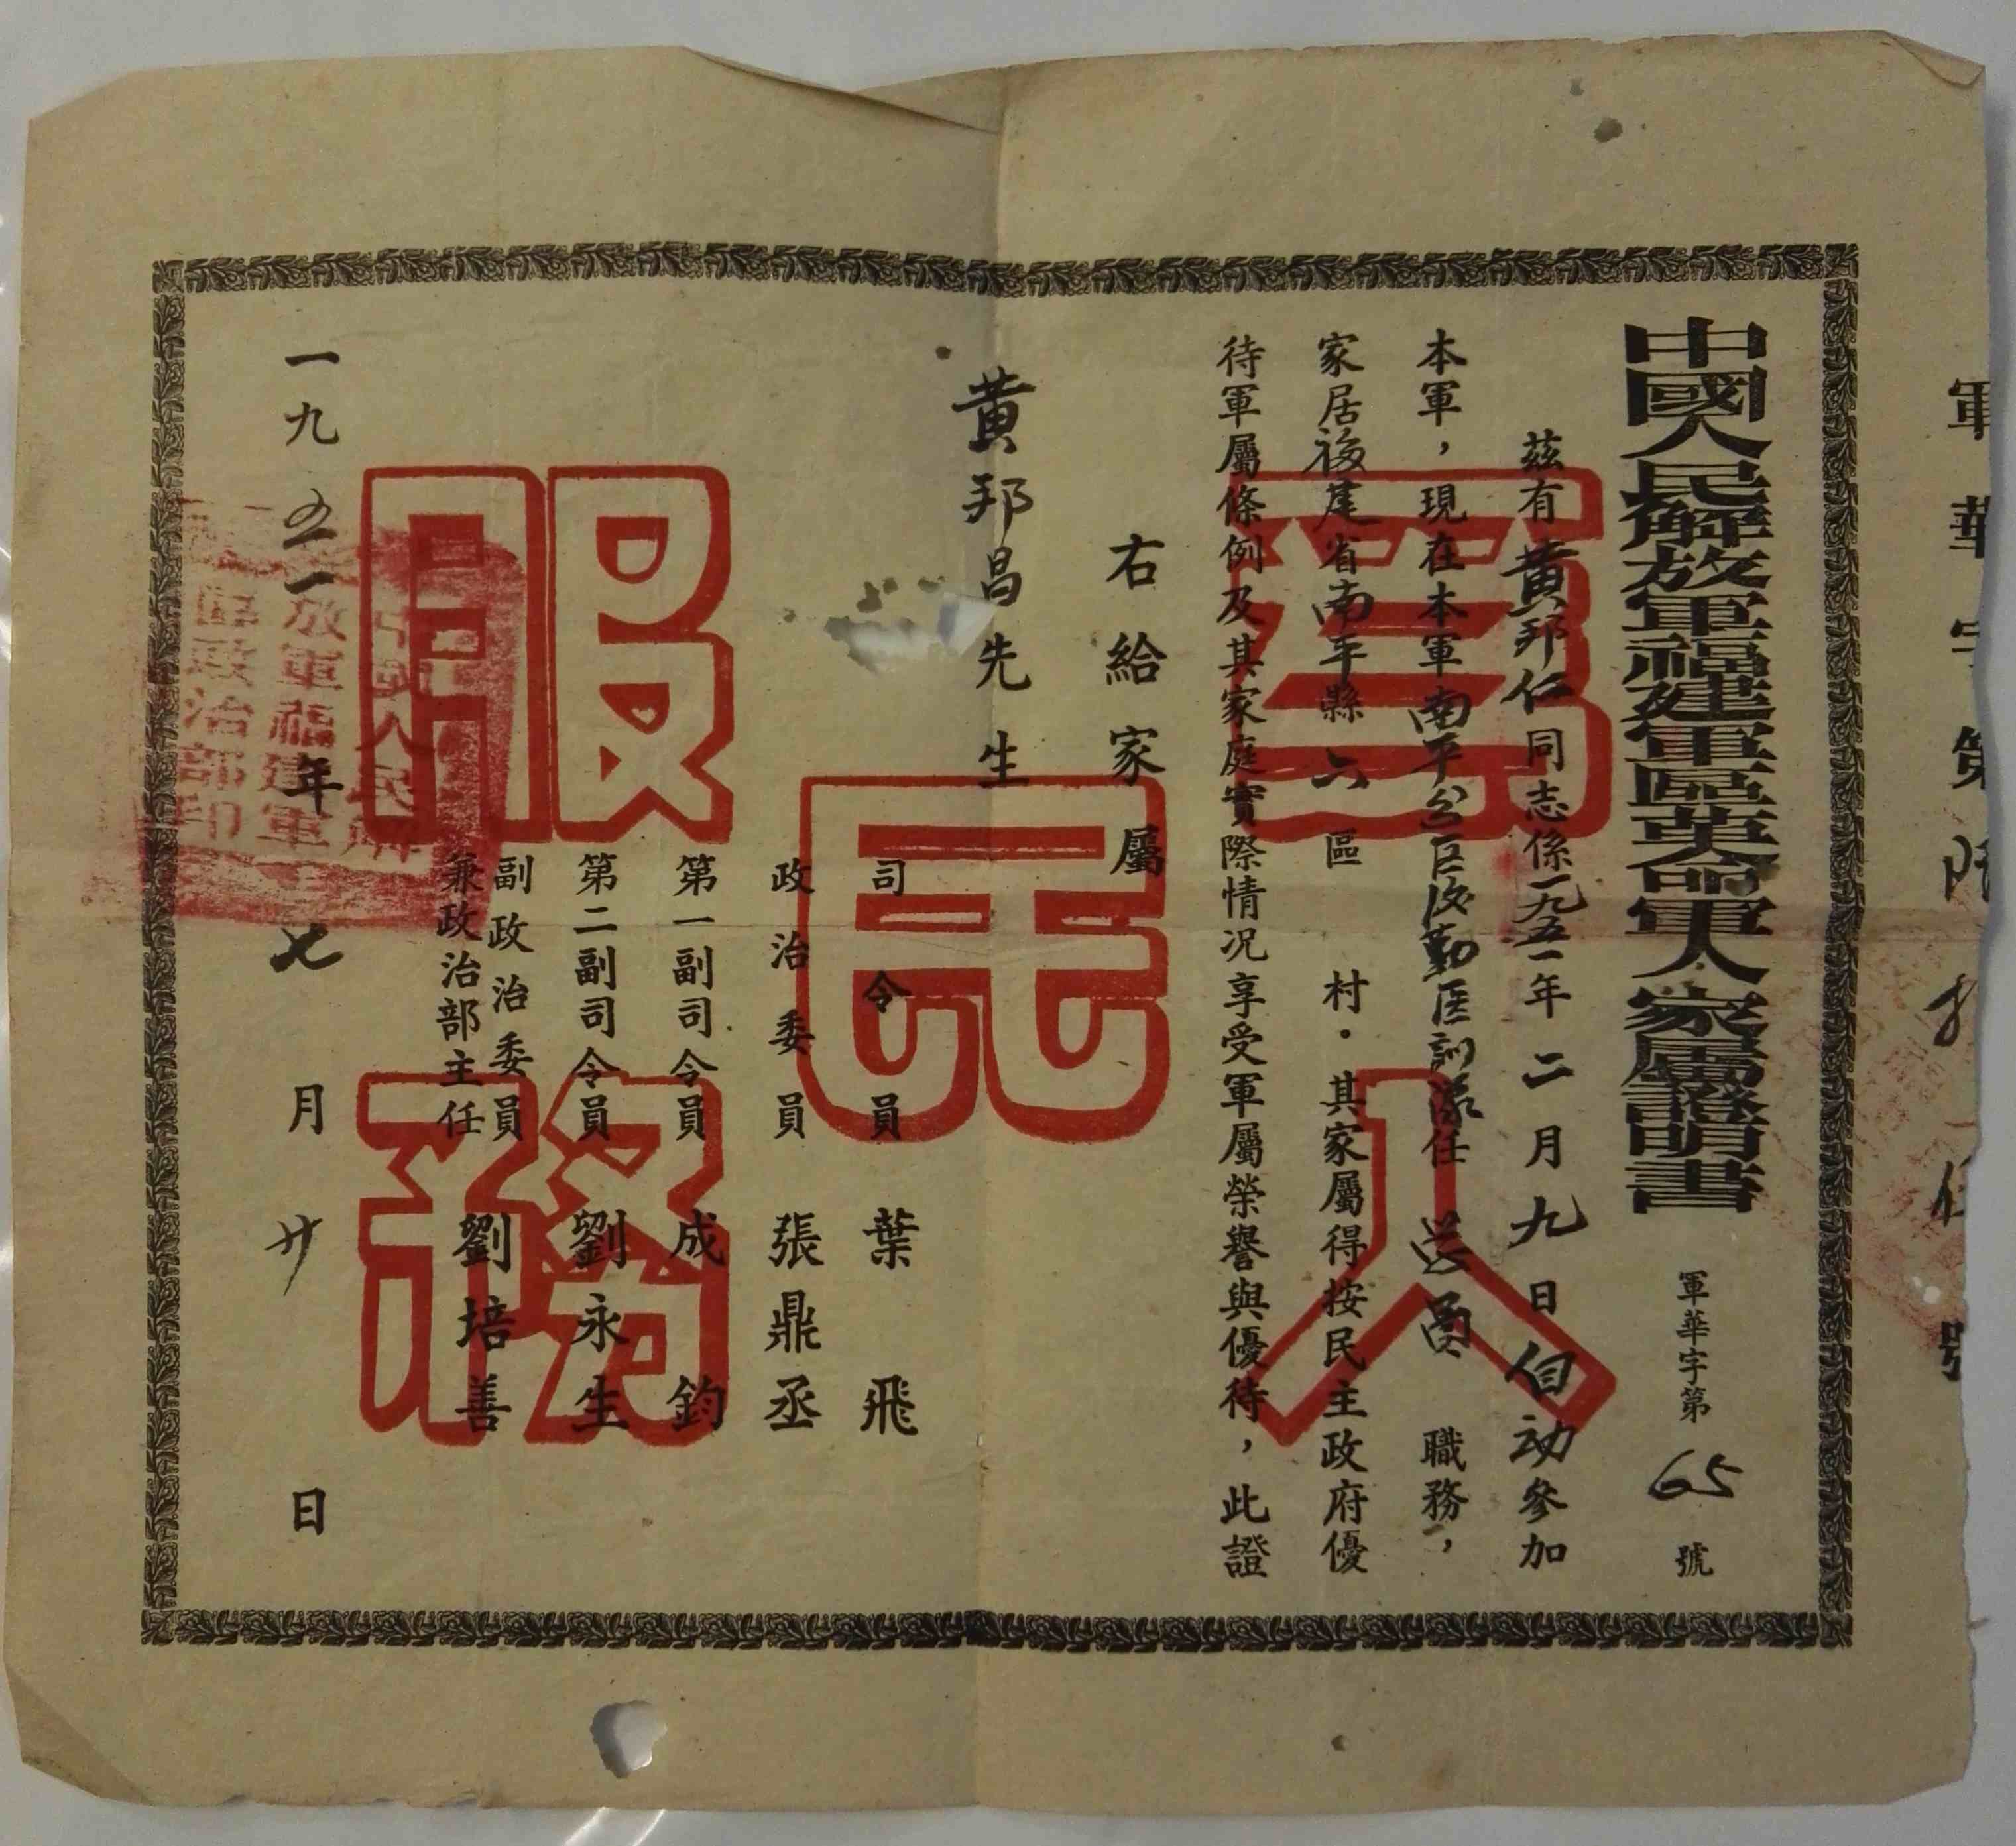 軍華字第陸拾伍號
中國人民解放軍福建軍區革命軍人家屬證明書
軍華字第65號
茲有黃邦仁同志係一九五一年二月九日自动參加
本軍,現在本軍南平分區後勤医訓隊任学員職務,
家居福建省南平縣六區 村.其家屬得按民主政府優
待軍屬條例及其家庭實際情况享受軍屬榮譽與優待,此證
右給家屬
黃邦昌先生
司令員 葉飛
政治委員 張鼎丞
第一副司令員 成鈞
第二副司令員 劉永生
副政治委員
兼政治部主任 劉培善
一九五一年七月廿日
為人民服務
中國人民解
放軍福建軍
區政治部印